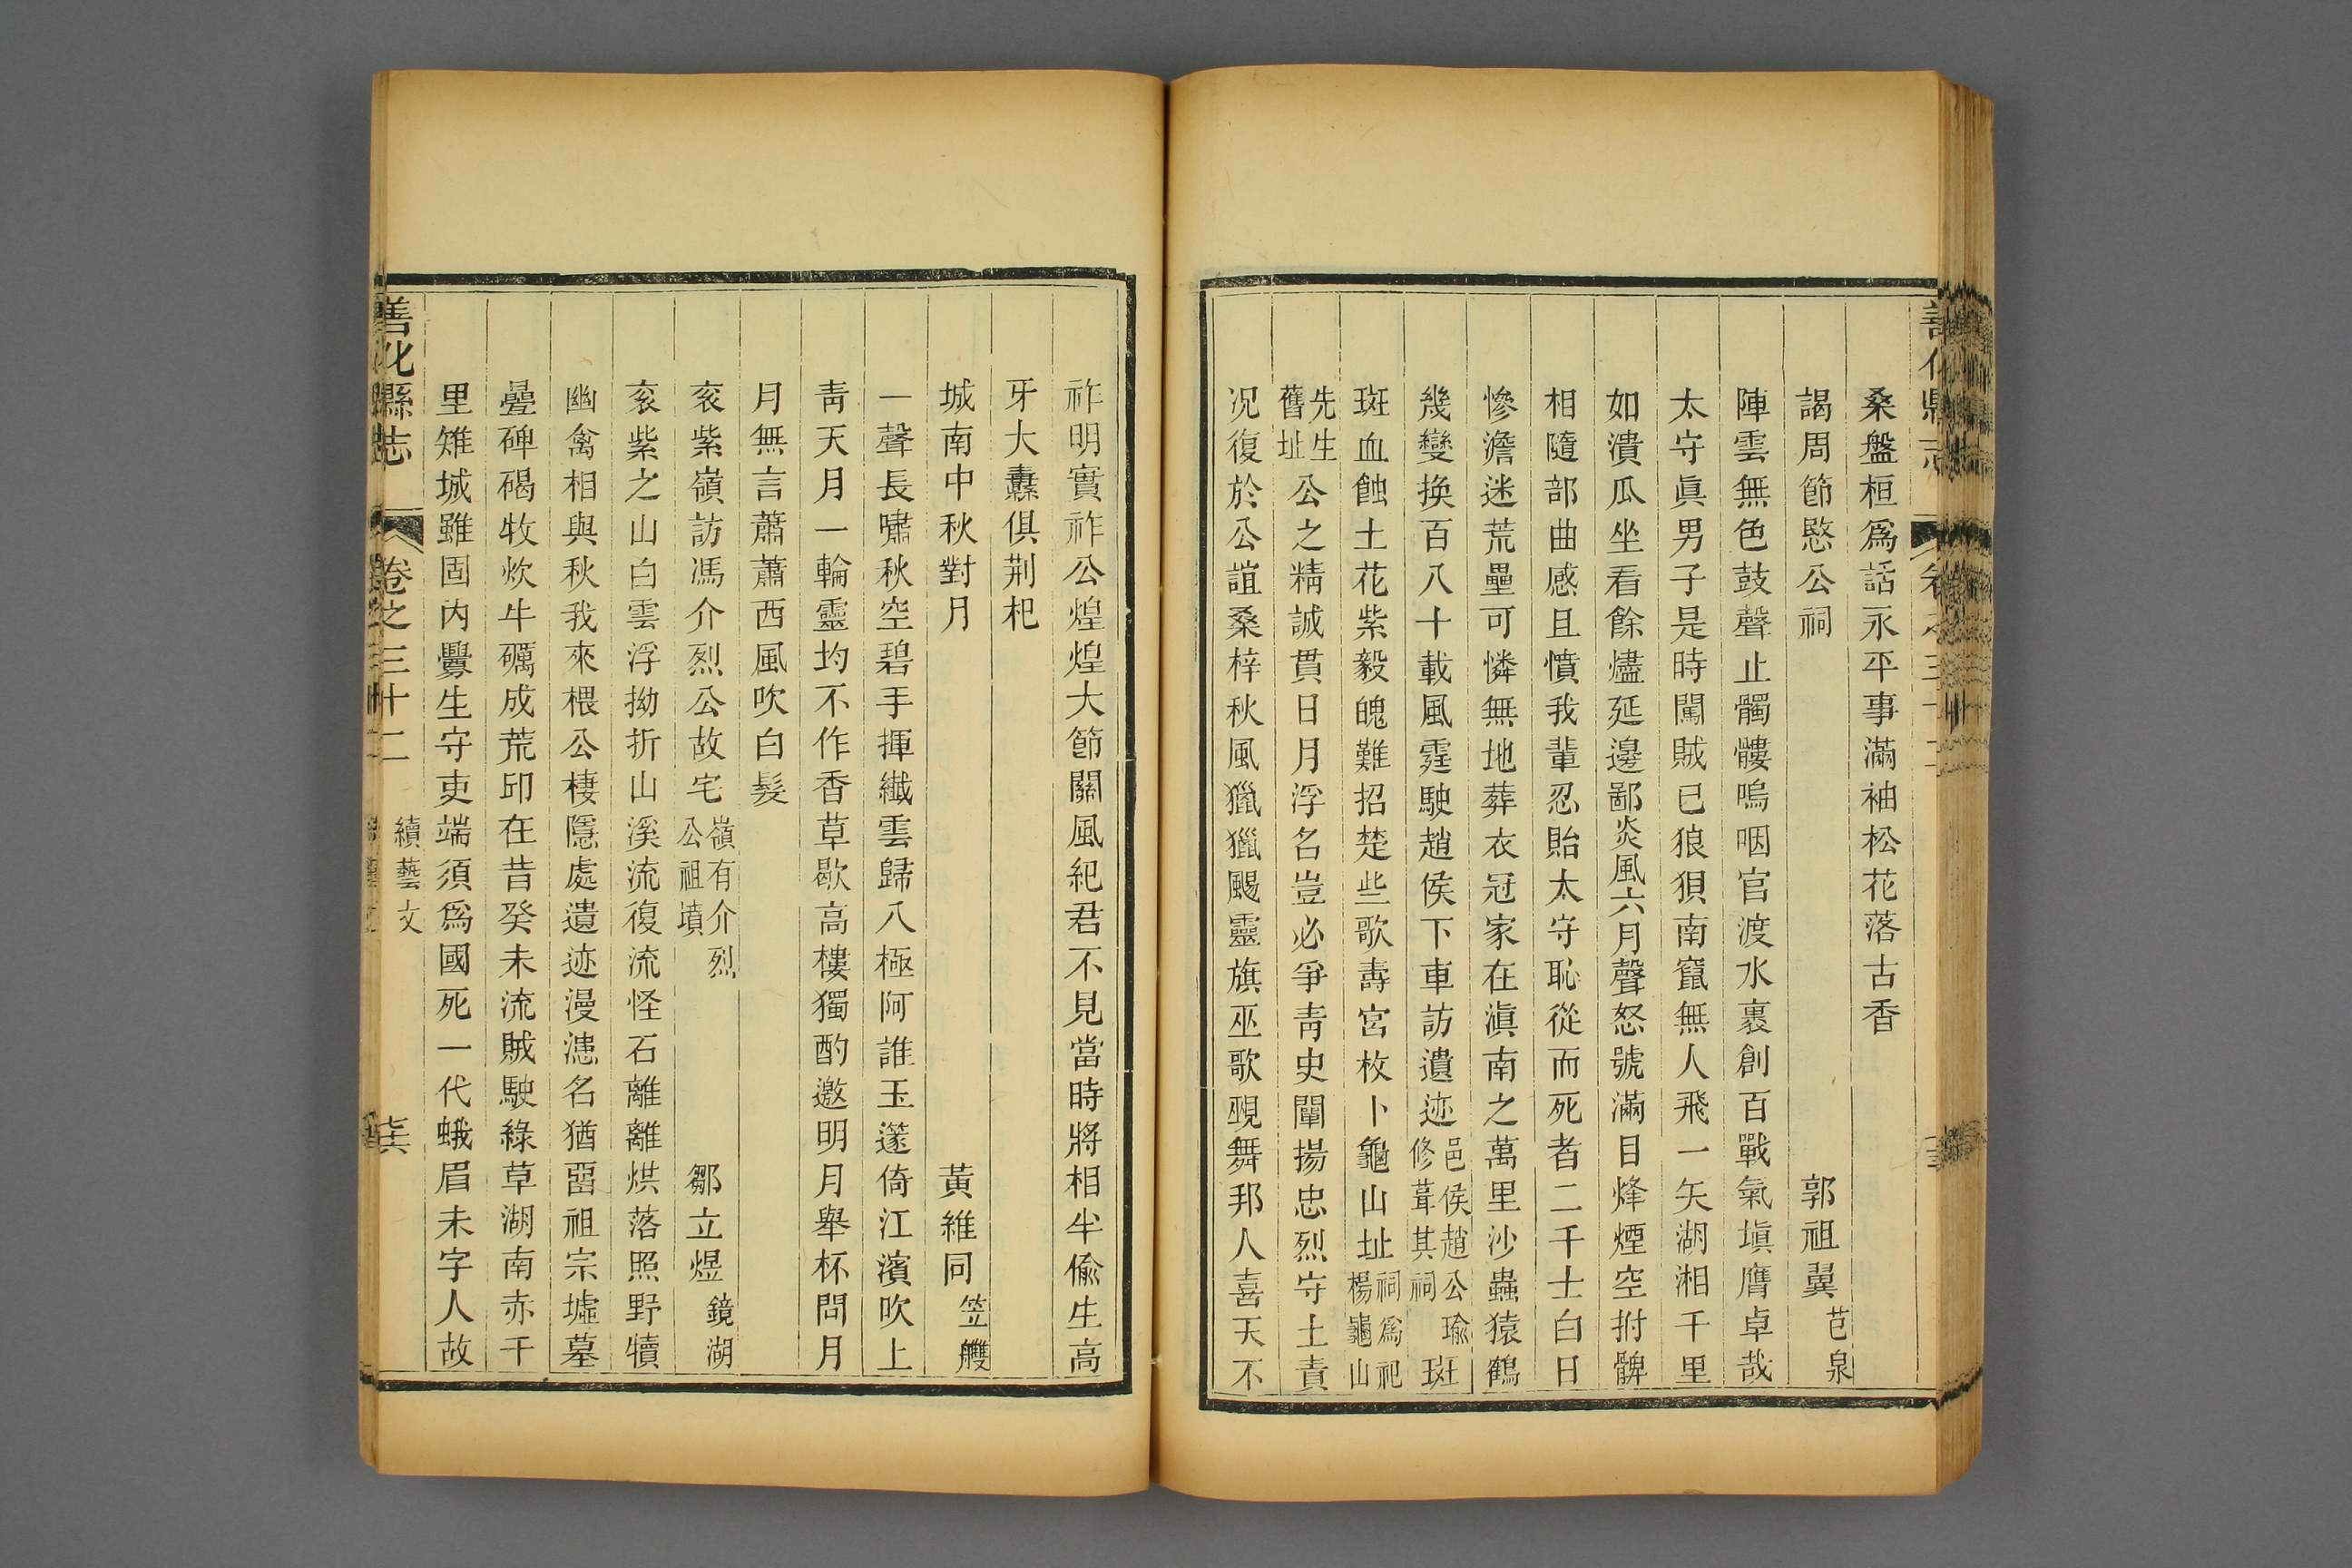 桑盤桓爲話永平事滿袖松花落古香
謁周節愍公祠 郭祖翼芑泉
陣雲無色鼓聲止髑髏嗚咽官渡水裹創百戰氣塡膺卓哉
太守眞男子是時闖賊已狼狽南竄無人飛一矢湖湘千里
如潰瓜坐看餘燼延邊鄙炎風六月聲怒號滿目烽煙空拊髀
相隨部曲感且憤我輩忍貽太守恥從而死者二千士白日
慘澹迷荒壘可憐無地葬衣冠家在滇南之萬里沙蟲猿鶴
幾變換百八十載風霆駛趙侯下車訪遺迹邑侯趙公瑜修葺其祠斑
斑血蝕土花紫毅魄難招楚些歌壽宮枚卜龜山址祠爲祀楊龜山
先生舊址公之精誠貫日月浮名豈必爭靑史闡揚忠烈守土責
况復於公誼桑梓秋風獵獵颺靈旗巫歌覡舞邦人喜天不
祚明實祚公煌煌大節關風紀君不見當時將相半偸生高
牙大纛俱荆杞
城南中秋對月 黃維同笠艭
一聲長嘯秋空碧手揮纖雲歸八極阿誰玉篴倚江濱吹上
靑天月一輪靈均不作香草歇高樓獨酌邀明月舉杯問月
月無言蕭蕭西風吹白髮
衮紫嶺訪馮介烈公故宅嶺有介烈公祖墳 鄒立煜鏡湖
衮紫之山白雲浮拗折山溪流復流怪石離離烘落照野犢
幽禽相與秋我來椳公棲隱處遺迹漫漶名猶畱祖宗墟墓
疊碑碣牧炊牛礪成荒印在昔癸未流賊駛綠草湖南赤千
里雉城雖固內釁生守吏端須爲國死一代蛾眉未字人故
善化縣志 卷之三十二 續藝文 七六